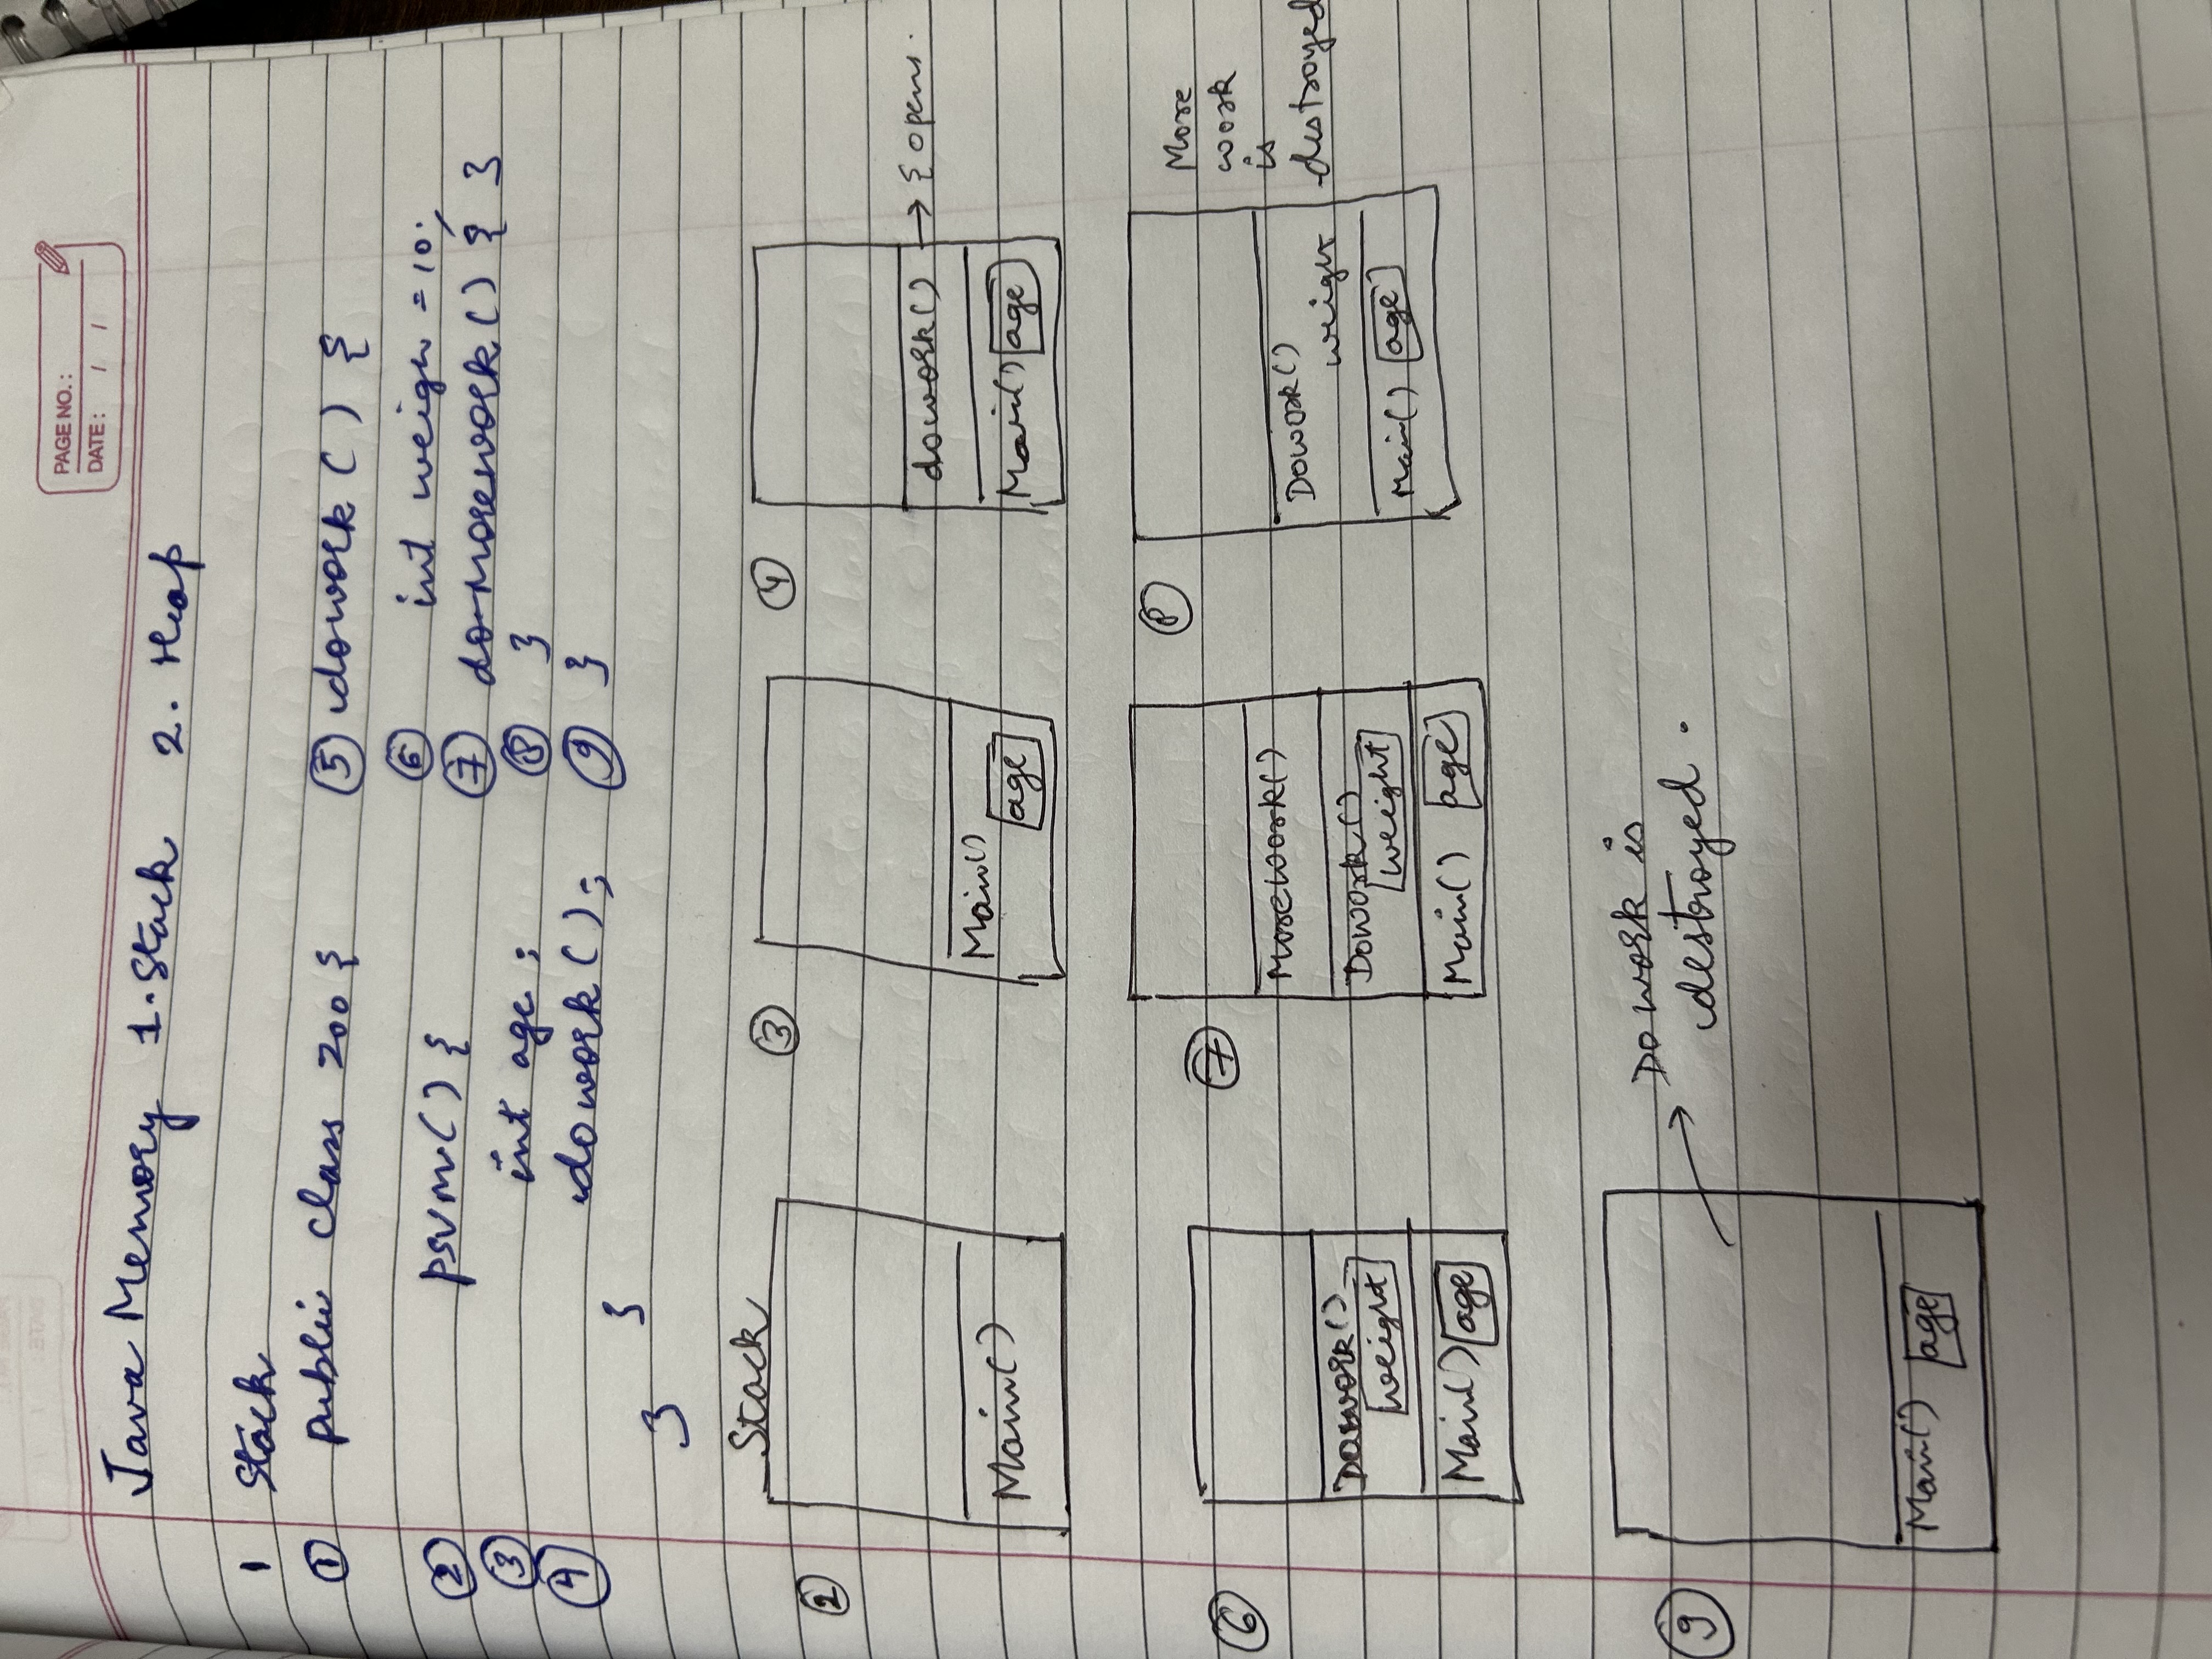 PAGE NO. :
DATE : / /
Java Memory 1. Stack 2. Heap
1 Stack
① public class Zoo {
② psvm() {
③ int age ;
④ dowork ( ) ;
}
}
⑤ dowork ( ) {
⑥ int weigh = 10;
⑦ do morework ( ) { }
⑧ }
⑨ }
Stack
②
Main()
③
Main()
age
④
dowork() → { opens.
Main() age
⑥
Dowork()
weight
Main() age
⑦
Morework()
Dowork()
weight
Main() age
⑧
Dowork()
weight
Main() age
More
work
is
destroyed
⑨
Do work is
destroyed .
Main() age